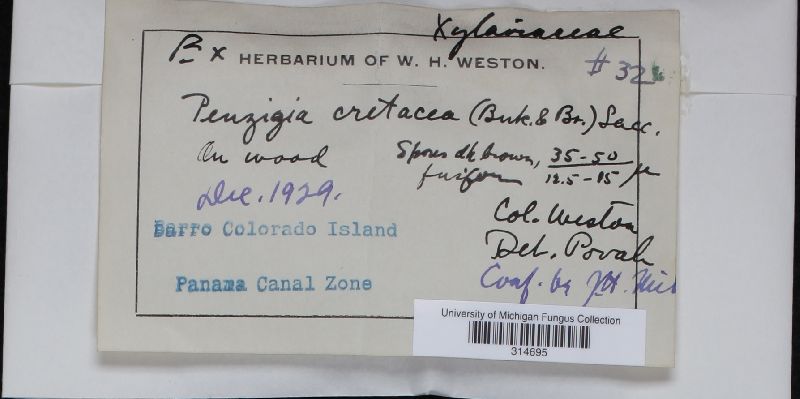 Xylariaceae
Bx HERBARIUM OF W. H. WESTON.
# 32
Penzigia cretacea (Berk. & Br.) Sacc.
On wood
Spores dk brown, 35-50
fusiform 12.5-15 μ
Dec. 1929.
Col. Weston
Barro Colorado Island
Det. Povah
Panama Canal Zone
Conf. by J.H.
University of Michigan Fungus Collection
314695